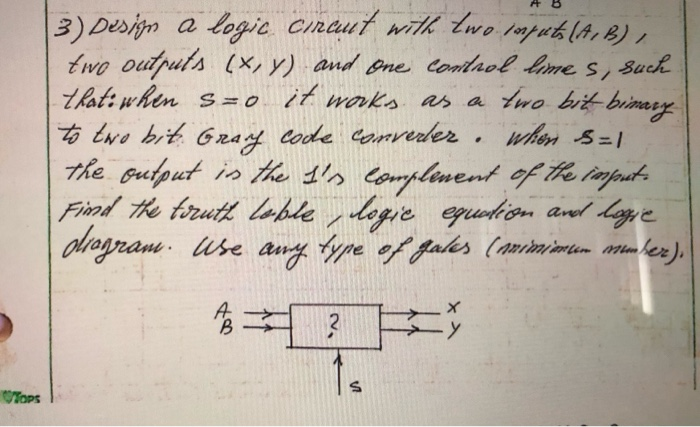 A B
3) Design a logic circuit with two inputs (A, B),
two outputs (X, Y) and one control line S, such
that: when S=0 it works as a two bit binary
to two bit Gray code converter. When S=1
the output is the 1's complement of the input.
Find the truth table, logic equation and logic
diagram. Use any type of gates (minimum number).
A X
B ? Y
S
TOPS